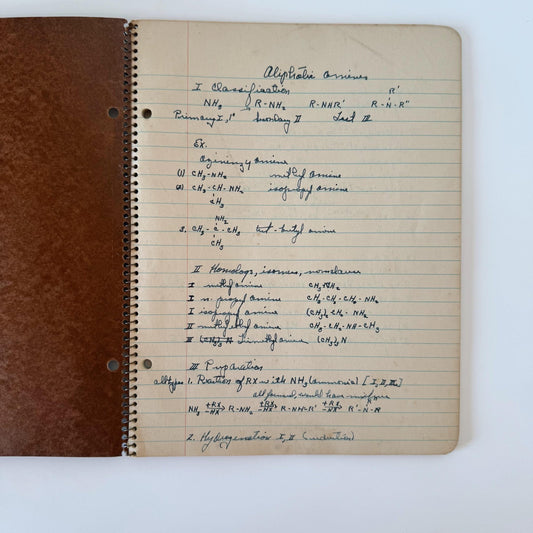 Aliphatic amines
I Classification
R'
NH3 R-NH2 R-NHR' R-N-R"
Primary I, 1° Secondary II Tert III
Ex.
amine
(1) CH3-NH2 methyl amine
(2) CH3-CH-NH2 isopropyl amine
CH3
NH2
3. CH3-C-CH3 tert-butyl amine
CH3
II Homologs, isomers, nomenclature
I methyl amine CH3NH2
I n. propyl amine CH3-CH2-CH2-NH2
I isopropyl amine (CH3)2CH-NH2
II methyl ethyl amine CH3-CH2-NH-CH3
III (CH3)3 N Trimethylamine (CH3)3N
III Preparation
all types 1. Reaction of RX with NH3 (ammonia) [I, II, III]
all formed, would have mixture
NH3 +RX -HX R-NH2 +RX -HX R-NH-R' +RX -HX R'-N-R
2. Hydrogenation I, II (reduction)